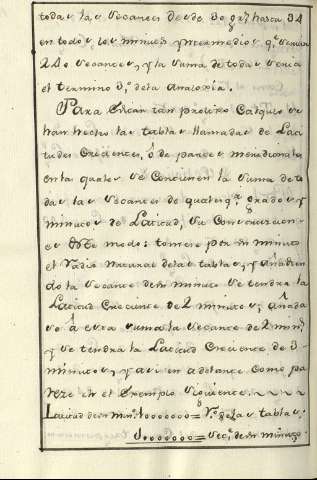 todas las secantes desde 30 gr.s hasta 34
en todos los minutos yntermedios q.e serian
240 secantes, y la suma de todas seria
el termino 3.o dela Analoxia.
Para escusar tan prolixo Calculo se
han hecho las tablas llamadas de Lati
tudes Crecientes, ó de partes meridionales
en la quales se Contienen la suma de to
das las secantes de qualesq.r grados y
minutos de Latitud, Su Construccion
es deste modo: tomese por un minuto
el Radio natural delas tablas, y añadien
do la secante de un minuto se tendra la
Latitud Creciente de 2 minutos, añada
se á esta suma la secante de 2 min.s
y se tendra la Latitud Creciente de 3
minutos, y asi en adelante como pa
reze en el exemplo siguiente.
Latitud de un min.o 10000000 = R.o delas tablas.
10000000 = sec.te de un minuto.